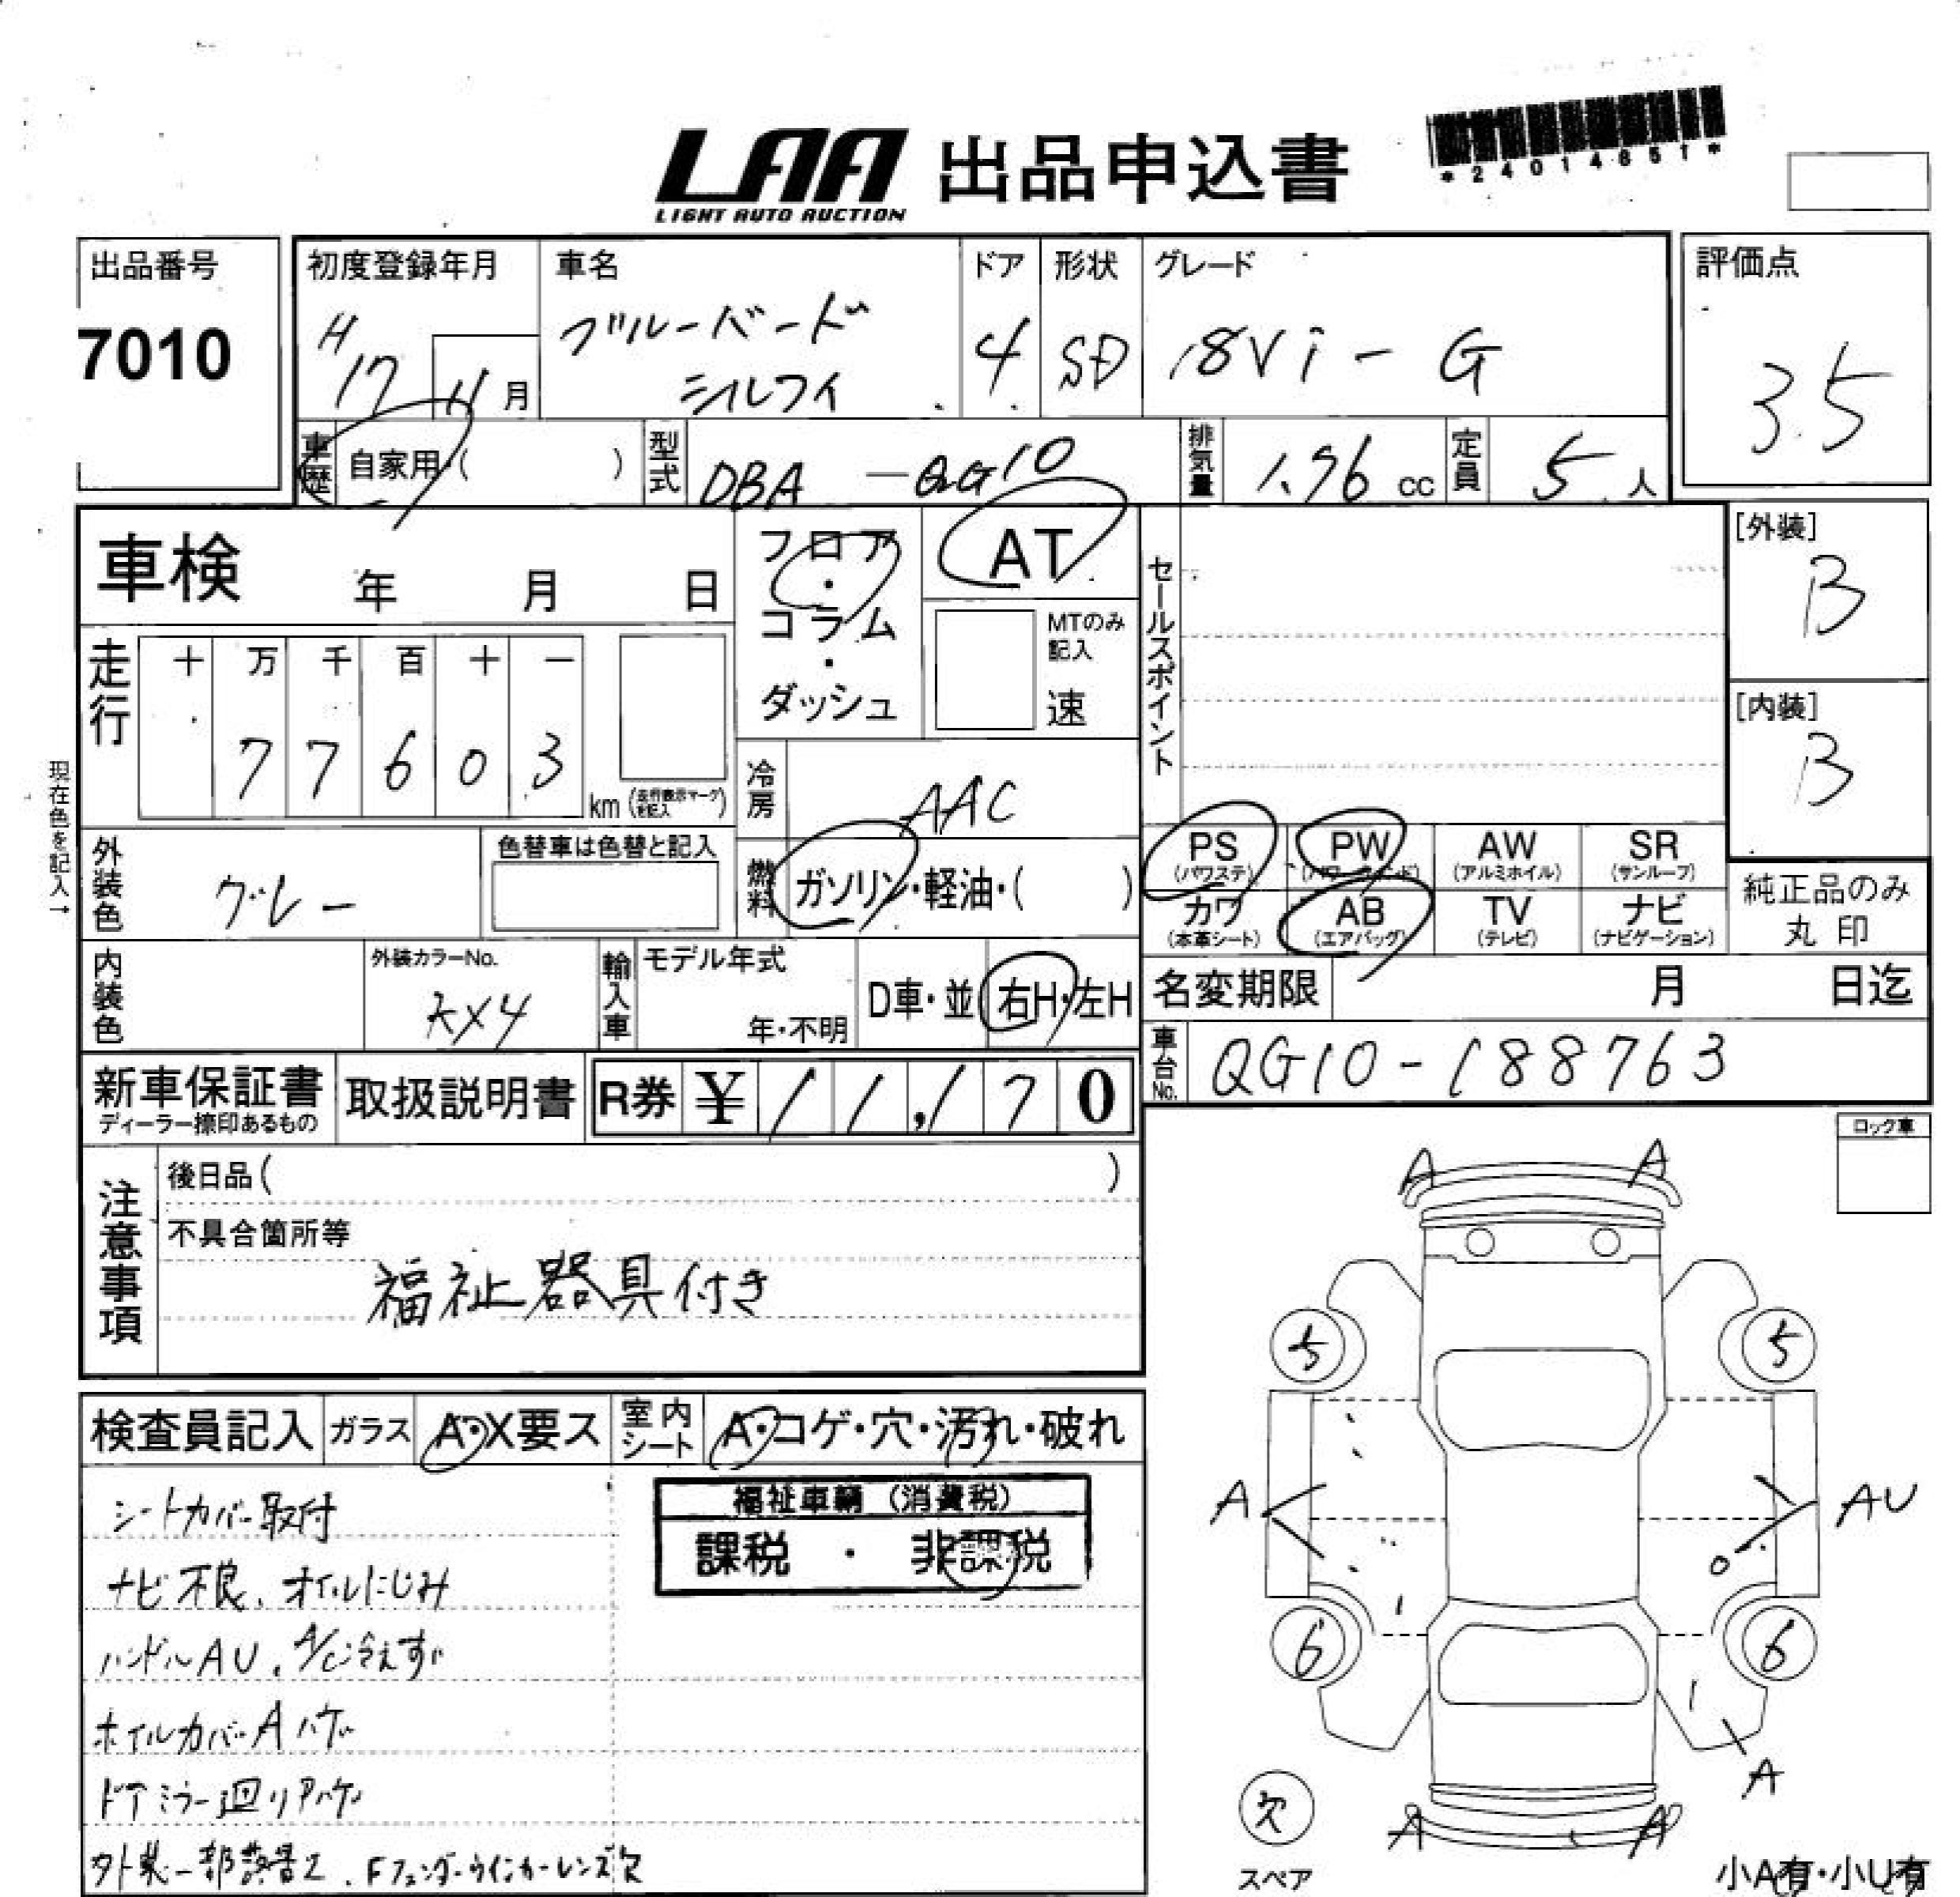 LAA 出品申込書
LIGHT AUTO AUCTION
*24014651*
出品番号
7010
初度登録年月
H17 11月
車名
ブルーバード
シルフィ
ドア
4
形状
SD
グレード
18Vi-G
評価点
3.5
車歴 自家用・( )
型式 DBA-QG10
排気量 1.76 cc
定員 5人
車検 年 月 日
フロア・コラム・ダッシュ
AT
MTのみ記入
速
セールスポイント
[外装]
B
[内装]
B
走行
十 万 千 百 十 一
7 7 6 0 3
km (走行表示マークを記入)
現在色を記入→
冷房 AAC
外装色 グレー
色替車は色替と記入
燃料 ガソリン・軽油・( )
PS (パワステ)
PW
AW (アルミホイル)
SR (サンルーフ)
カワ (本革シート)
AB (エアバッグ)
TV (テレビ)
ナビ (ナビゲーション)
純正品のみ
丸印
内装色
外装カラーNo.
KX4
輸入車
モデル年式
年・不明
D車・並
右H・左H
名変期限 月 日迄
車台No. QG10-188763
新車保証書
ディーラー捺印あるもの
取扱説明書
R券 ¥11,170
ロック車
注意事項
後日品( )
不具合箇所等
福祉器具付き
検査員記入 ガラス A・X要ス 室内シート A・コゲ・穴・汚れ・破れ
シートカバー取付
ナビ不良、オイルにじみ
ハンドルAU、A/C冷えず
ホイルカバーAハゲ
ドアミラー廻りAハゲ
外装一部
Fフェンダーウインカーレンズ欠
福祉車輌 (消費税)
課税 ・ 非課税
A A
5 5
A AU
6 6
A
A A
欠
スペア
小A有・小U有